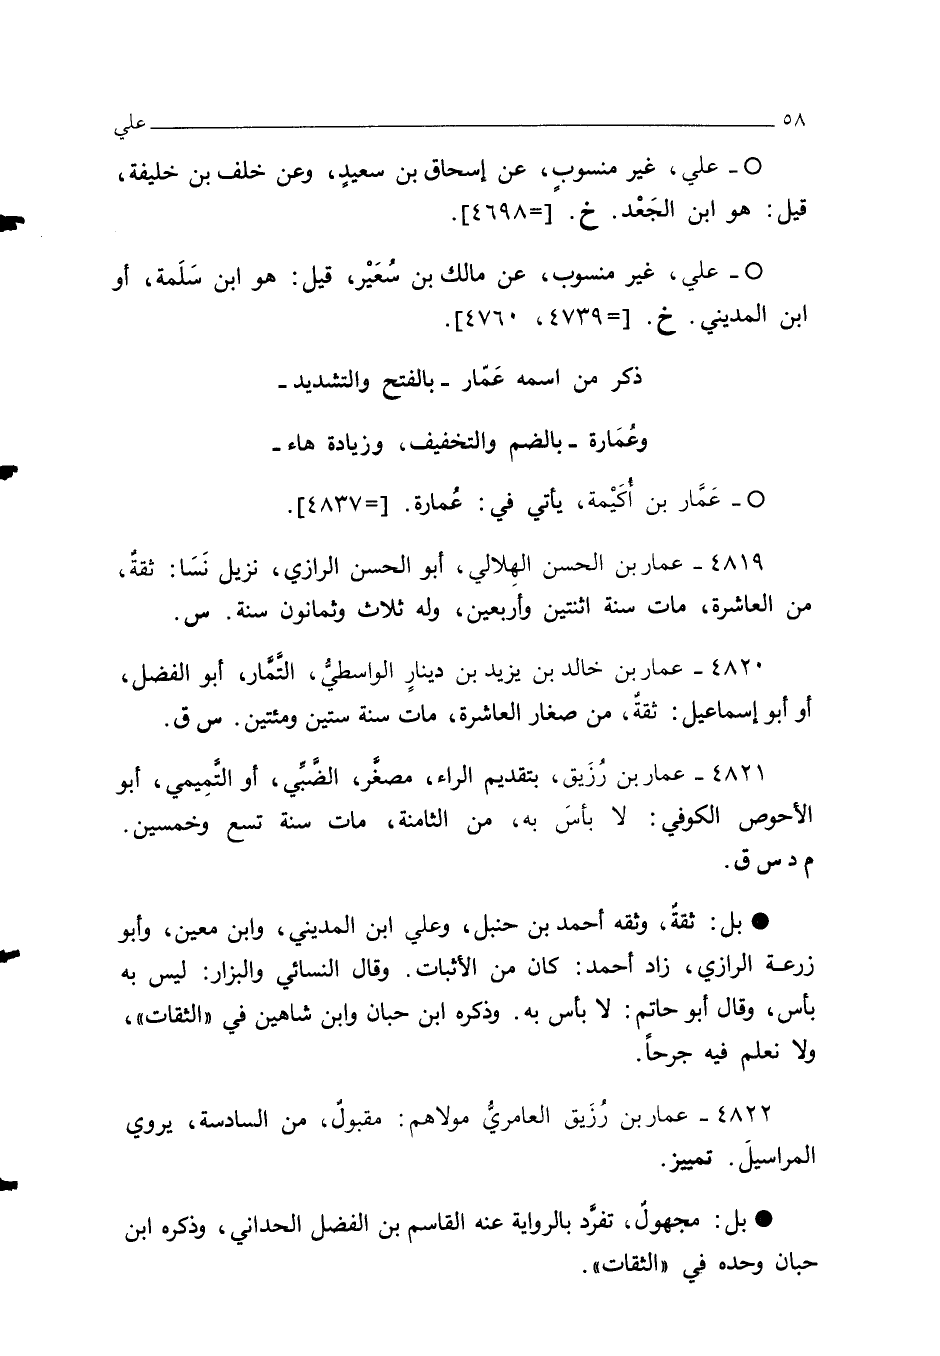 ٥٨ علي
○ ـ علي، غير منسوبٍ، عن إسحاق بن سعيدٍ، وعن خلف بن خليفة،
قيل: هو ابن الجَعْد. خ. [=٤٦٩٨].
○ ـ علي، غير منسوب، عن مالك بن سُعَيْر، قيل: هو ابن سَلَمة، أو
ابن المديني. خ. [=٤٧٣٩، ٤٧٦٠].
ذكر من اسمه عَمّار ـ بالفتح والتشديد ـ
وعُمَارة ـ بالضم والتخفيف، وزيادة هاء ـ
○ ـ عَمَّار بن أُكَيْمة، يأتي في: عُمارة. [=٤٨٣٧].
٤٨١٩ ـ عمار بن الحسن الهِلالي، أبو الحسن الرازي، نزيل نَسَا: ثقةٌ،
من العاشرة، مات سنة اثنتين وأربعين، وله ثلاث وثمانون سنة. س.
٤٨٢٠ ـ عمار بن خالد بن يزيد بن دينارٍ الواسطيُّ، التَّمَّار، أبو الفضل،
أو أبو إسماعيل: ثقةٌ، من صغار العاشرة، مات سنة ستين ومئتين. س ق.
٤٨٢١ ـ عمار بن رُزَيق، بتقديم الراء، مصغَّر، الضَّبِّي، أو التَّمِيمي، أبو
الأحوص الكوفي: لا بأسَ به، من الثامنة، مات سنة تسع وخمسين.
م د س ق.
● بل: ثقةٌ، وثقه أحمد بن حنبل، وعلي ابن المديني، وابن معين، وأبو
زرعة الرازي، زاد أحمد: كان من الأثبات. وقال النسائي والبزار: ليس به
بأس، وقال أبو حاتم: لا بأس به. وذكره ابن حبان وابن شاهين في «الثقات»،
ولا نعلم فيه جرحاً.
٤٨٢٢ ـ عمار بن رُزَيق العامريُّ مولاهم: مقبولٌ، من السادسة، يروي
المراسيلَ. تمييز.
● بل: مجهولٌ، تفرَّد بالرواية عنه القاسم بن الفضل الحداني، وذكره ابن
حبان وحده في «الثقات».